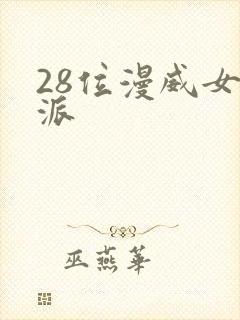 28位漫威女
派
巫燕華